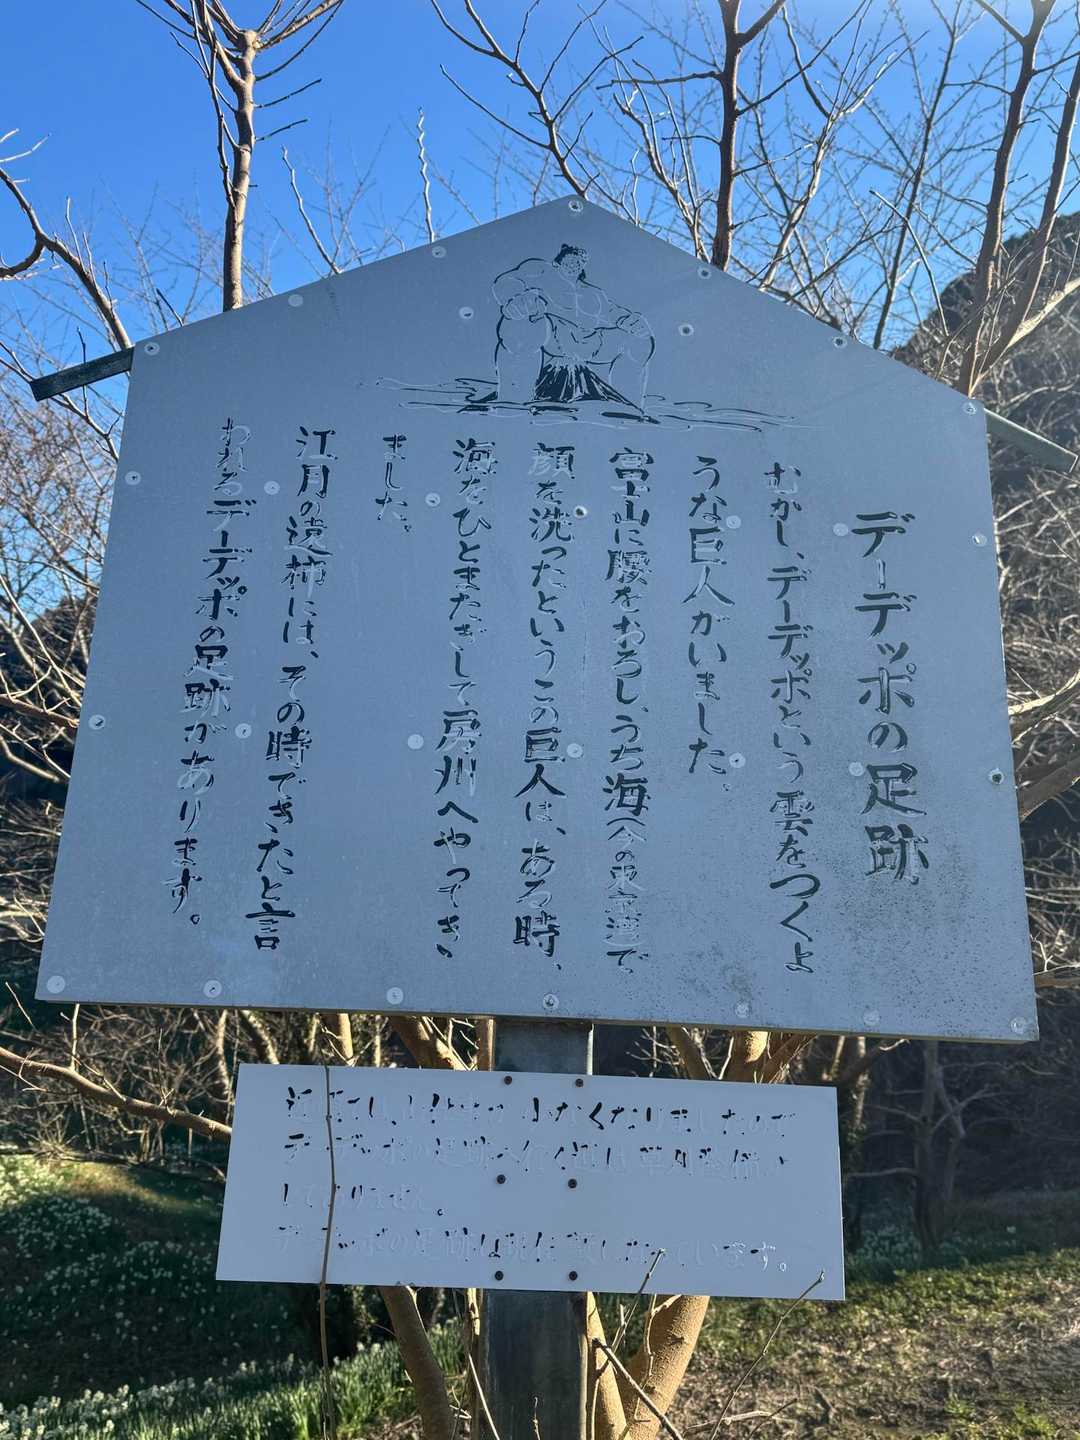 デーデッポの足跡
むかし、デーデッポという雲をつくよ
うな巨人がいました。
富士山に腰をおろし、うち海(今の東京湾)で
顔を洗ったというこの巨人は、ある時、
海をひとまたぎして房州へやってき
ました。
江月の遠柿には、その時できたと言
われるデーデッポの足跡があります。
小なくなりましたので
デーデッポの足跡へ行く道は草刈整備を
しておりません。
デーデッポの足跡は
います。